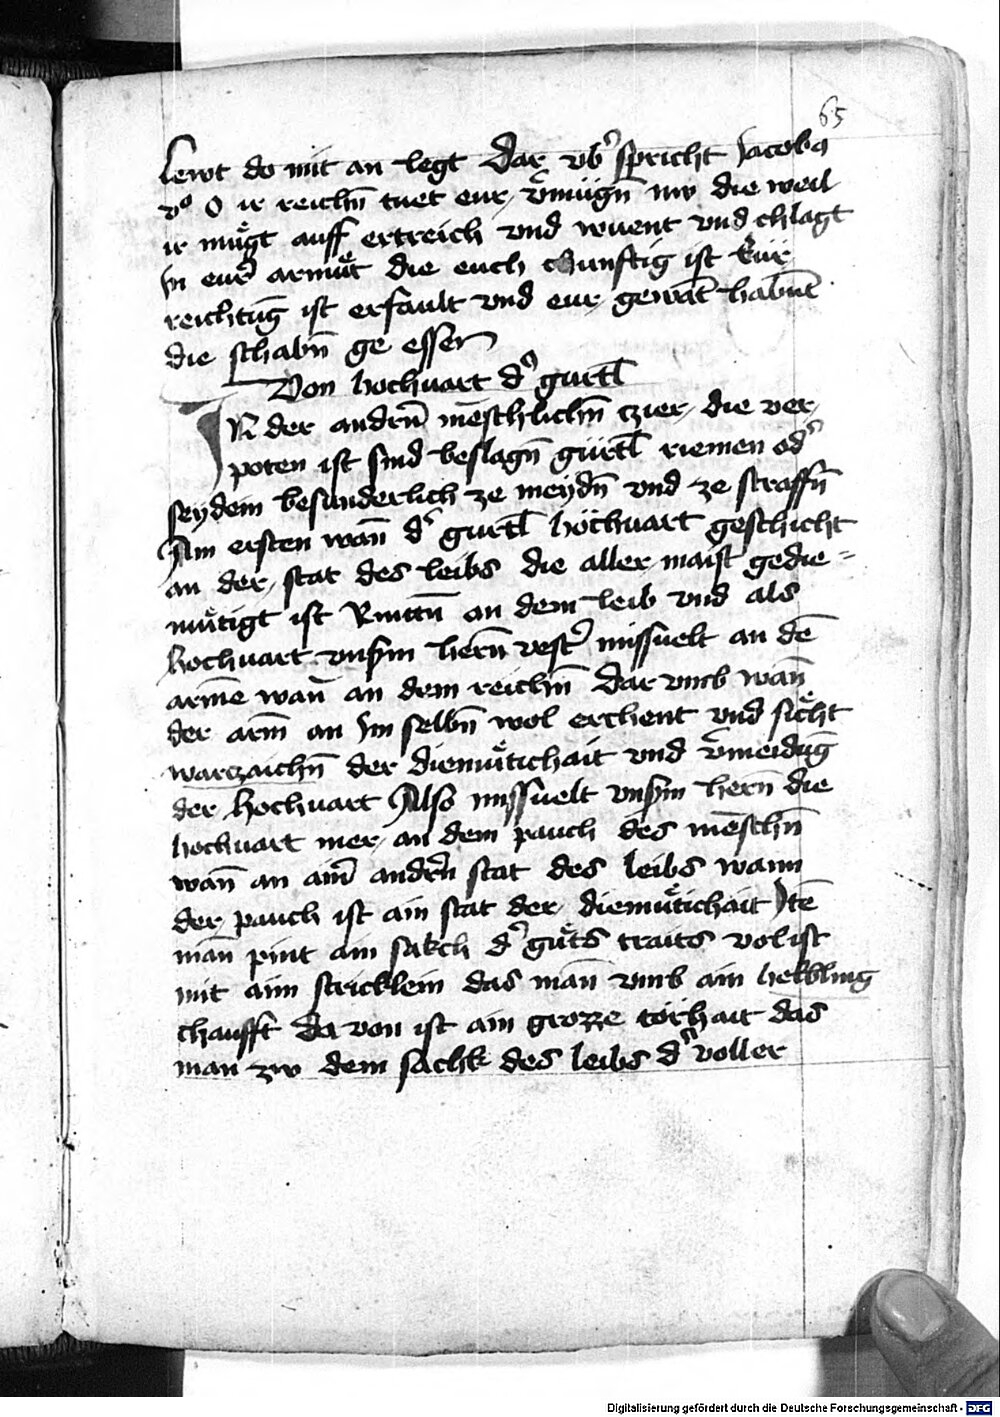 65
lewt do mit an legt Dar vb̾ spricht Jacobꝰ
vͦ O ir reichñ tuet eur v̾mügñ nw die weil
ir mügt auff ertreich vnd wuent vnd chlagt
jn eur̾ armuͤt die euch chunftig ist Eür
reichtūg ist erfault vnd eur gewāt habn̄t
die schabn̄ ge essen
Von hochuart d̾ gurtl
IN der andrn̄ mēschlichn̄ czier die ver
poten ist sind beslagn̄ gürtl riemen od̾
seydein besunderlich ze meydn̄ vnd ze straffn̄
Am ersten wan̄ d̾ gurtl höchuart geschicht
an der stat des leibs die aller maist gedie=
muͤtigt ist an dem leib vnd als
hochuart vnsm̄ hern̄ vest̾ missuelt an dē
armē wan̄ an dem reichn̄ Dar vmb wan̄
der arm̄ an jm selbn̄ wol erchent vnd sicht
warczaichn̄ der diemuͤtichait vnd v̾meidūg
der hochuart Also missuelt vnsm̄ hern̄ die
hochuart mer an dem pauch des mēschn̄
wan̄ an aim̄ andrn̄ stat des leibs wann
der pauch ist ain stat der diemuͤtichait Jtē
man pint ain sakch d̾ guͤts traits vol ist
mit aim stricklein das man vmb ain helbling
chaufft Da von ist ain grozze törhait das
man zw dem sachk des leibs d̾ voller
Digitalisierung gefördert durch die Deutsche Forschungsgemeinschaft - DFG